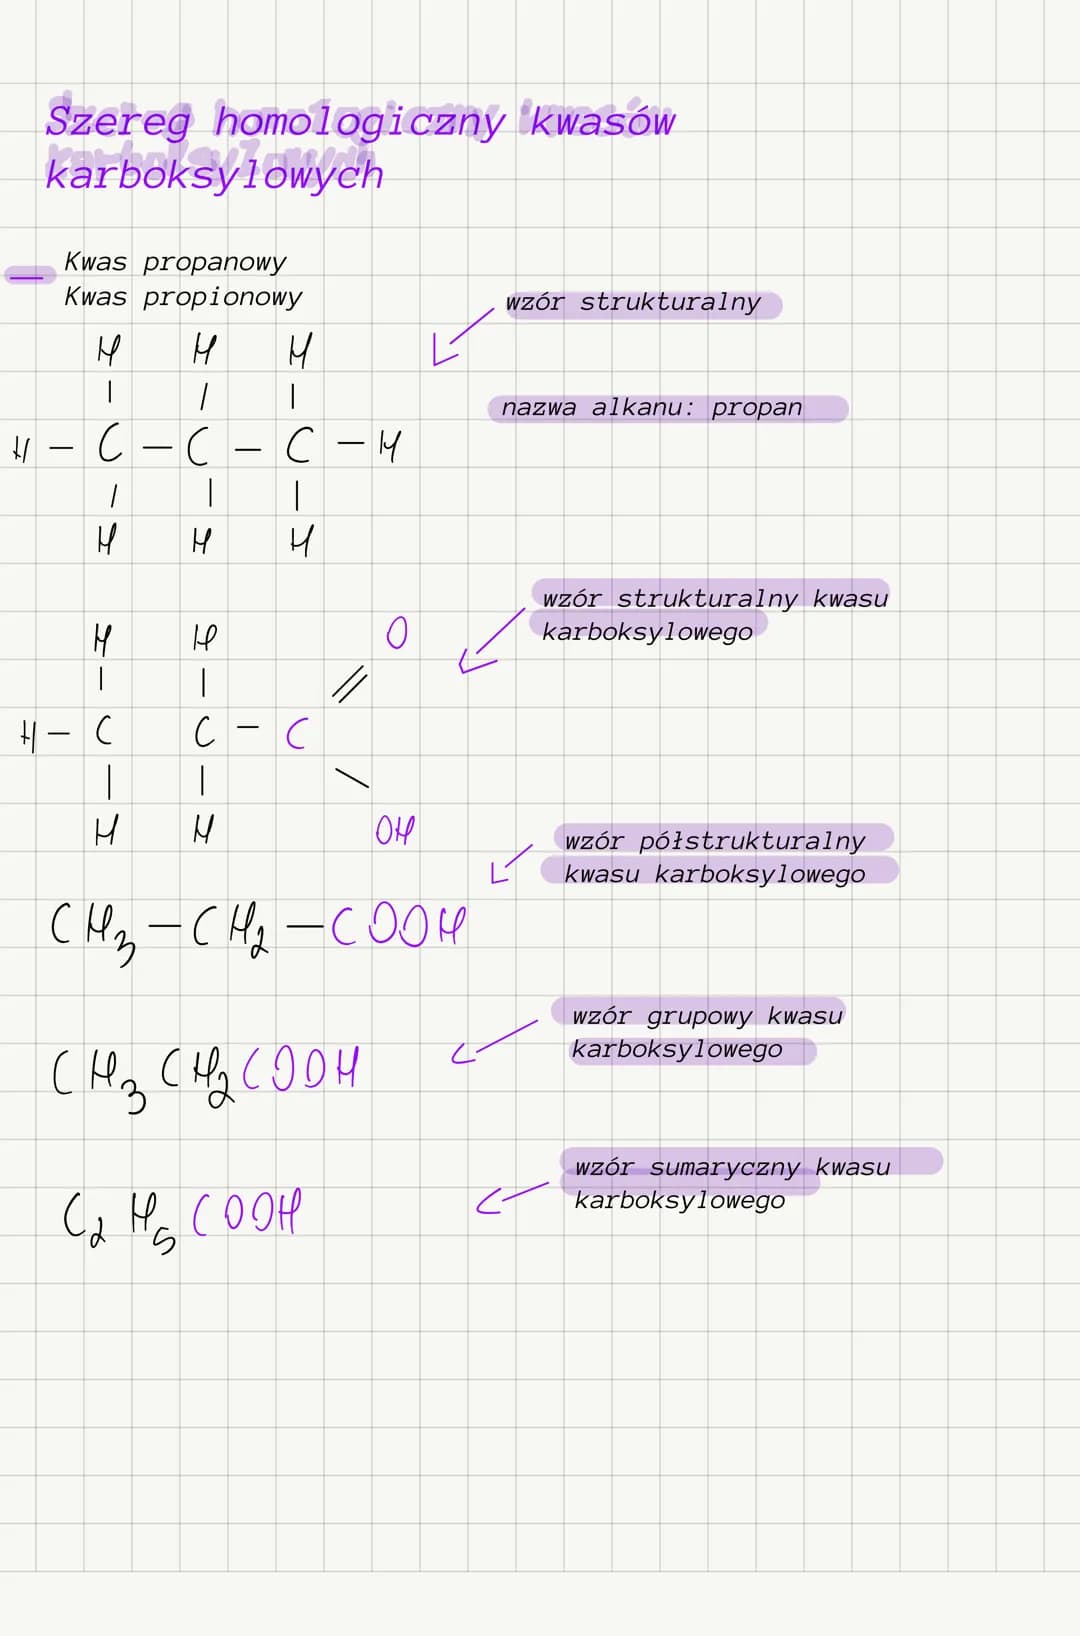 Szereg homologiczny kwasów
karboksylowych
Kwas propanowy
Kwas propionowy
wzór strukturalny
H H H
nazwa alkanu: propan
H – C – C – C – H
H H H
wzór strukturalny kwasu
karboksylowego
H H O
H – C C – C
H H OH
wzór półstrukturalny
kwasu karboksylowego
CH₃ – CH₂ – COOH
wzór grupowy kwasu
karboksylowego
CH₃CH₂COOH
wzór sumaryczny kwasu
karboksylowego
C₂H₅COOH